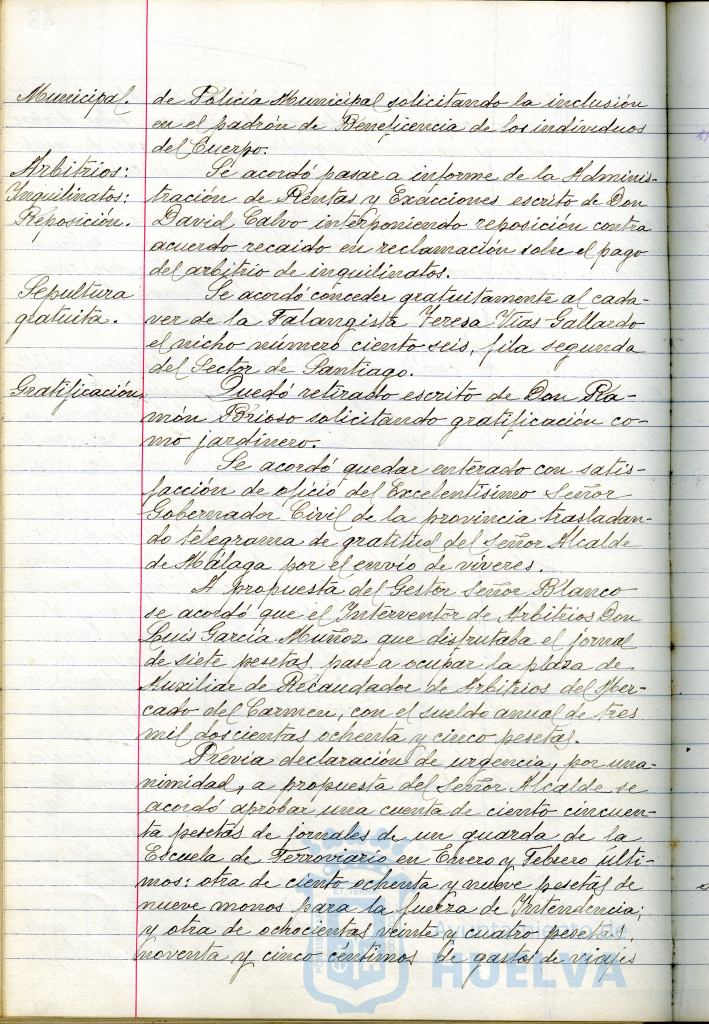 Municipal.
de Policía Municipal solicitando la inclusión
en el padrón de Beneficencia de los individuos
del Cuerpo.
Arbitrios:
Inquilinatos:
Reposición.
Se acordó pasar a informe de la Adminis-
tración de Rentas y Exacciones escrito de Don
David Calvo interponiendo reposición contra
acuerdo recaido en reclamación sobre el pago
del arbitrio de inquilinatos.
Sepultura
gratuita.
Se acordó conceder gratuitamente al cada-
ver de la Falangista Teresa Vias Gallardo
el nicho número ciento seis, fila segunda
del Sector de Santiago.
Gratificación.
Quedó retirado escrito de Don Ra-
món Brioso solicitando gratificación co-
mo jardinero.
Se acordó quedar enterado con satis-
facción de oficio del Excelentísimo Señor
Gobernador Civil de la provincia trasladan-
do telegrama de gratitud del Señor Alcalde
de Málaga por el envio de víveres.
A propuesta del Gestor Señor Blanco
se acordó que el Interventor de Arbitrios Don
Luis García Muñoz que disfrutaba el jornal
de siete pesetas pase a ocupar la plaza de
Auxiliar de Recaudador de Arbitrios del Mer-
cado del Carmen, con el sueldo anual de tres
mil doscientas ochenta y cinco pesetas.
Previa declaración de urgencia, por una-
nimidad, a propuesta del Señor Alcalde se
acordó aprobar una cuenta de ciento cincuen-
ta pesetas de jornales de un guarda de la
Escuela de Ferroviario en Enero y Febrero últi-
mos: otra de ciento ochenta y nueve pesetas de
nueve monos para la fuerza de Intendencia;
y otra de ochocientas veinte y cuatro pesetas,
noventa y cinco céntimos de gastos de viajes
HUELVA